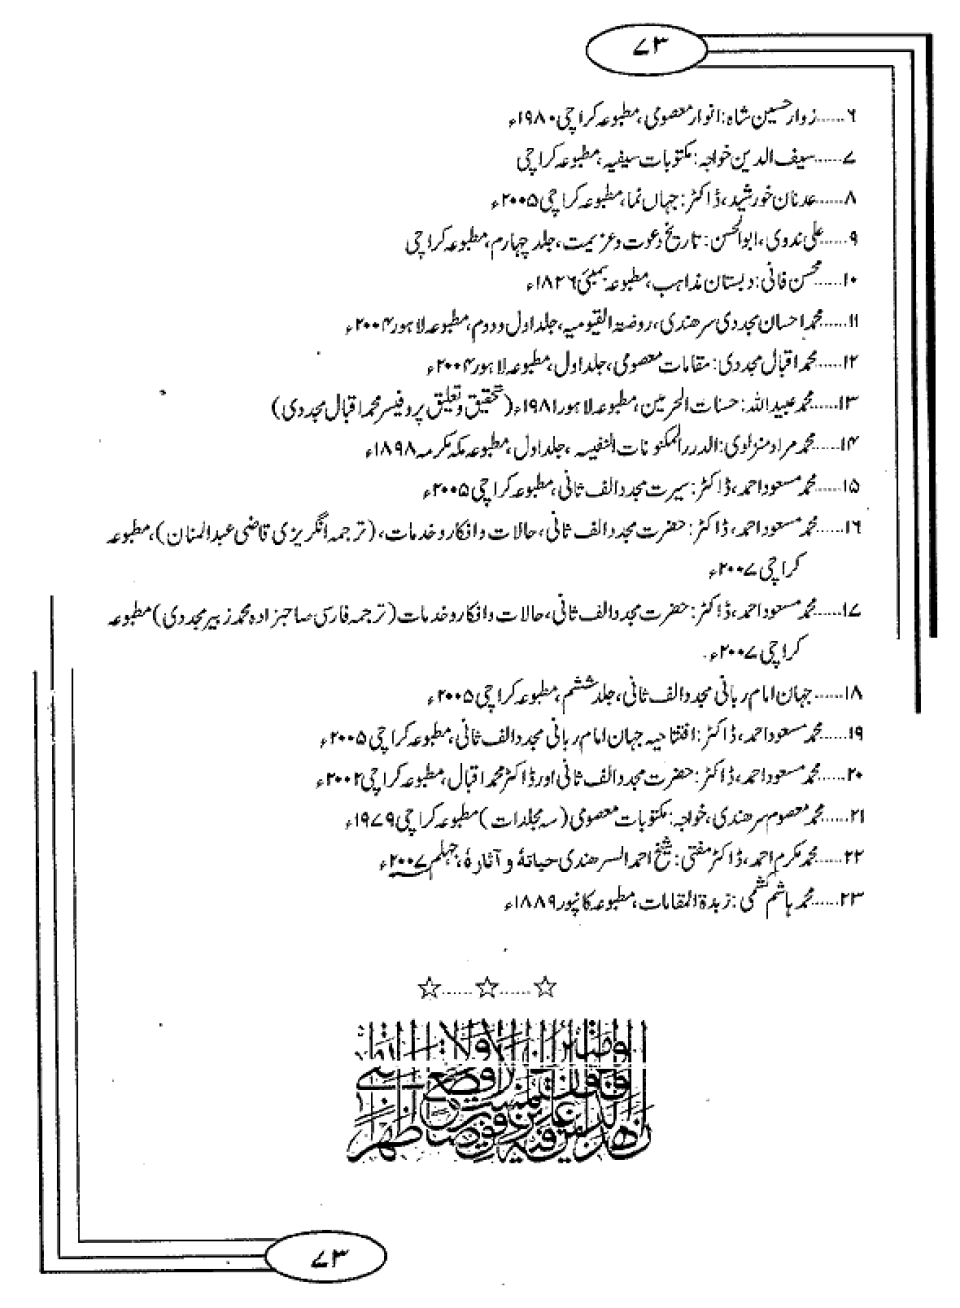 ۷۳
۶......زوار حسین شاہ: انوار معصومی، مطبوعہ کراچی ۱۹۸۰ء
۷......سیف الدین خواجہ: مکتوبات سیفیہ، مطبوعہ کراچی
۸......عدنان خورشید، ڈاکٹر: جہاں نما، مطبوعہ کراچی ۲۰۰۵ء
۹......علی ندوی، ابوالحسن: تاریخ دعوت وعزیمت، جلد چہارم، مطبوعہ کراچی
۱۰......محسن فانی: دبستان مذاہب، مطبوعہ بمبئی ۱۸۲۶ء
۱۱......محمد احسان مجددی سرھندی، روضۃ القیومیہ، جلد اول ودوم، مطبوعہ لاہور ۲۰۰۴ء
۱۲......محمد اقبال مجددی: مقامات معصومی، جلد اول، مطبوعہ لاہور ۲۰۰۴ء
۱۳......محمد عبید اللہ: حسنات الحرمین، مطبوعہ لاہور ۱۹۸۱ء (تحقیق وتعلیق پروفیسر محمد اقبال مجددی)
۱۴......محمد مراد منزلوی: الدرر المکنونات النفیسہ، جلد اول، مطبوعہ مکہ مکرمہ ۱۸۹۸ء
۱۵......محمد مسعود احمد، ڈاکٹر: سیرت مجدد الف ثانی، مطبوعہ کراچی ۲۰۰۵ء
۱۶......محمد مسعود احمد، ڈاکٹر: حضرت مجدد الف ثانی، حالات وافکار وخدمات، (ترجمہ انگریزی قاضی عبدالمنان)، مطبوعہ
کراچی ۲۰۰۷ء
۱۷......محمد مسعود احمد، ڈاکٹر: حضرت مجدد الف ثانی، حالات وافکار وخدمات (ترجمہ فارسی صاحبزادہ محمد زبیر مجددی) مطبوعہ
کراچی ۲۰۰۷ء
۱۸......جہان امام ربانی مجدد الف ثانی، جلد ششم، مطبوعہ کراچی ۲۰۰۵ء
۱۹......محمد مسعود احمد، ڈاکٹر: افتتاحیہ جہان امام ربانی مجدد الف ثانی، مطبوعہ کراچی ۲۰۰۵ء
۲۰......محمد مسعود احمد، ڈاکٹر: حضرت مجدد الف ثانی اور ڈاکٹر محمد اقبال، مطبوعہ کراچی ۲۰۰۲ء
۲۱......محمد معصوم سرھندی، خواجہ: مکتوبات معصومی (سہ مجلدات) مطبوعہ کراچی ۱۹۷۹ء
۲۲......محمد مکرم احمد، ڈاکٹر مفتی: شیخ احمد السرھندی حیاتہٗ و آثارہٗ، جہلم ۲۰۰۷ء
۲۳......محمد ہاشم کشمی: زبدۃ المقامات، مطبوعہ کانپور ۱۸۸۹ء
☆......☆......☆
۷۳